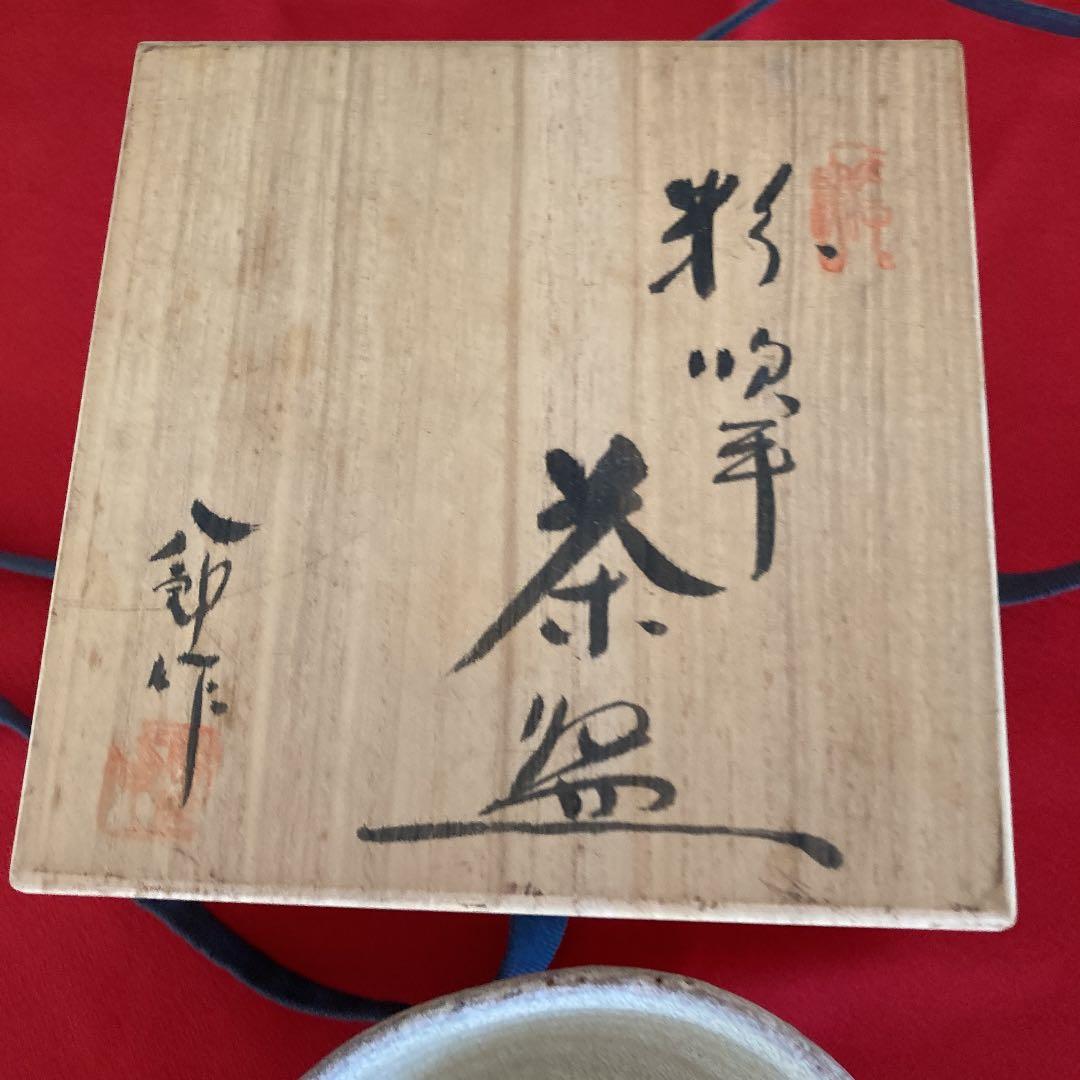 粉吹手
茶盌
八郎作